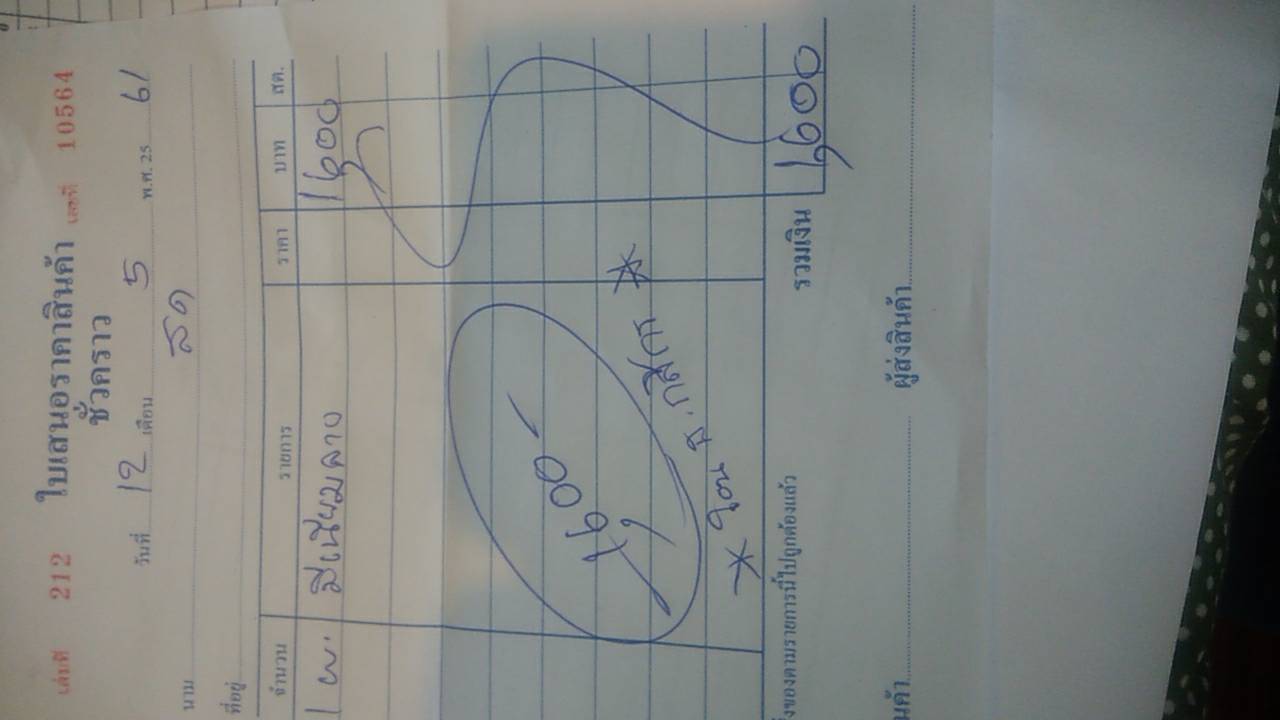 เล่มที่ 212 ใบเสนอราคาสินค้า เลขที่ 10564
ชั่วคราว
วันที่ 12 เดือน 5 พ.ศ. 25 61
นาม สด
ที่อยู่
จำนวน รายการ ราคา บาท สต.
1 1600
1,600
รวมเงิน 1,600
ของตามรายการนี้ไปถูกต้องแล้ว
ผู้ส่งสินค้า